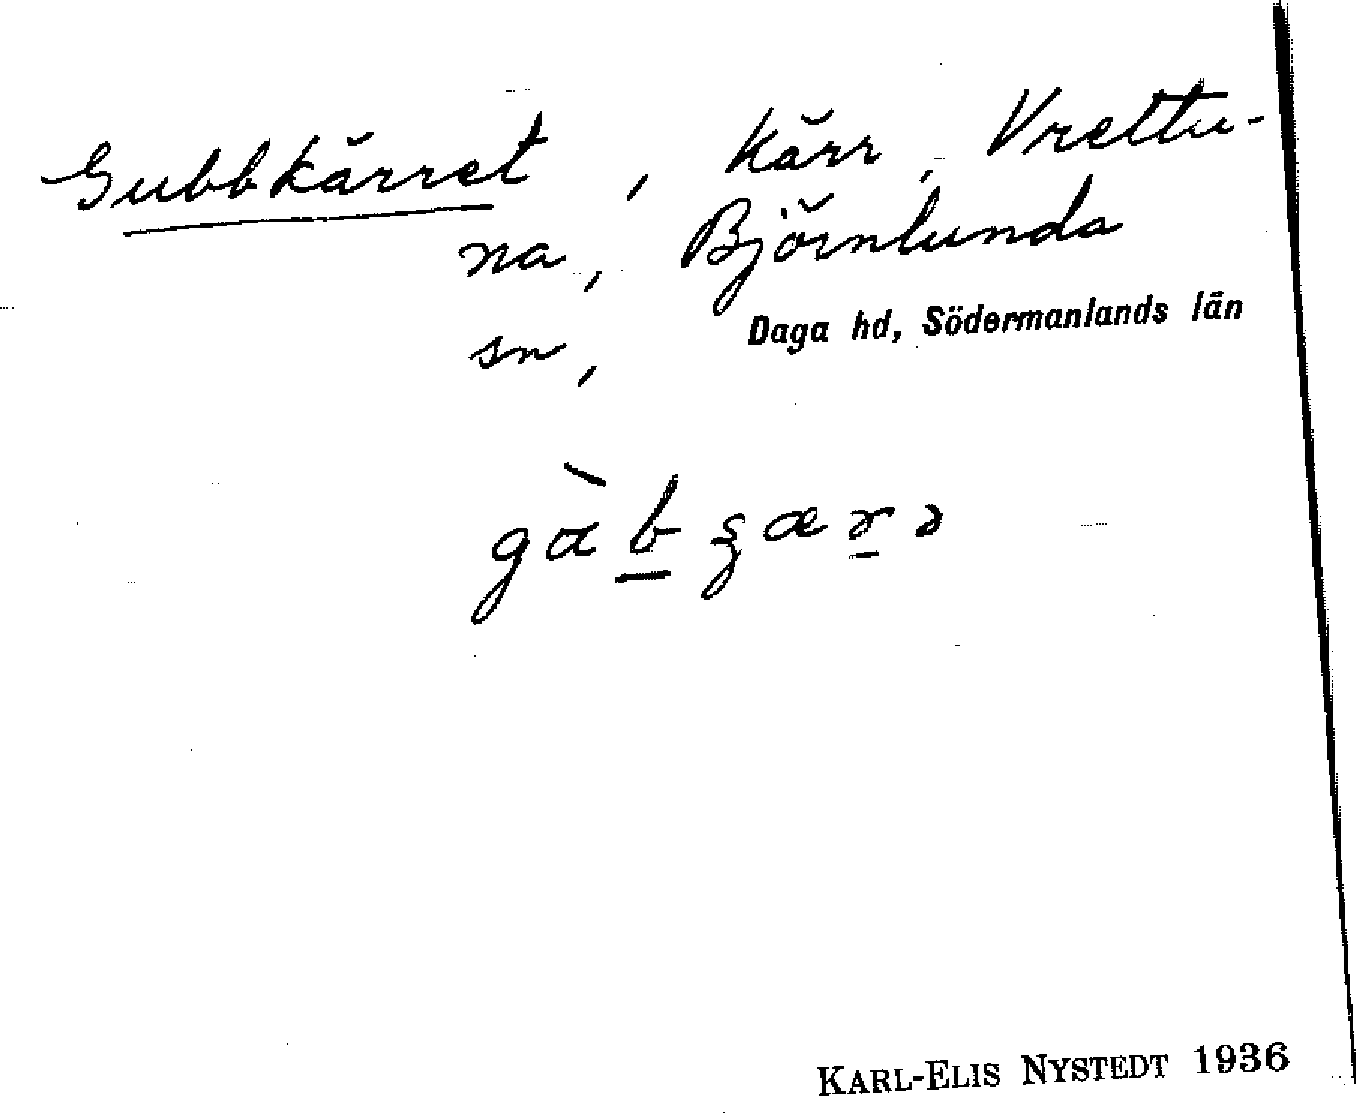 Gubbkärret, kärr, Vrettu-
na, Björnlunda
sn, Daga hd, Södermanlands län
KARL-ELIS NYSTEDT 1936